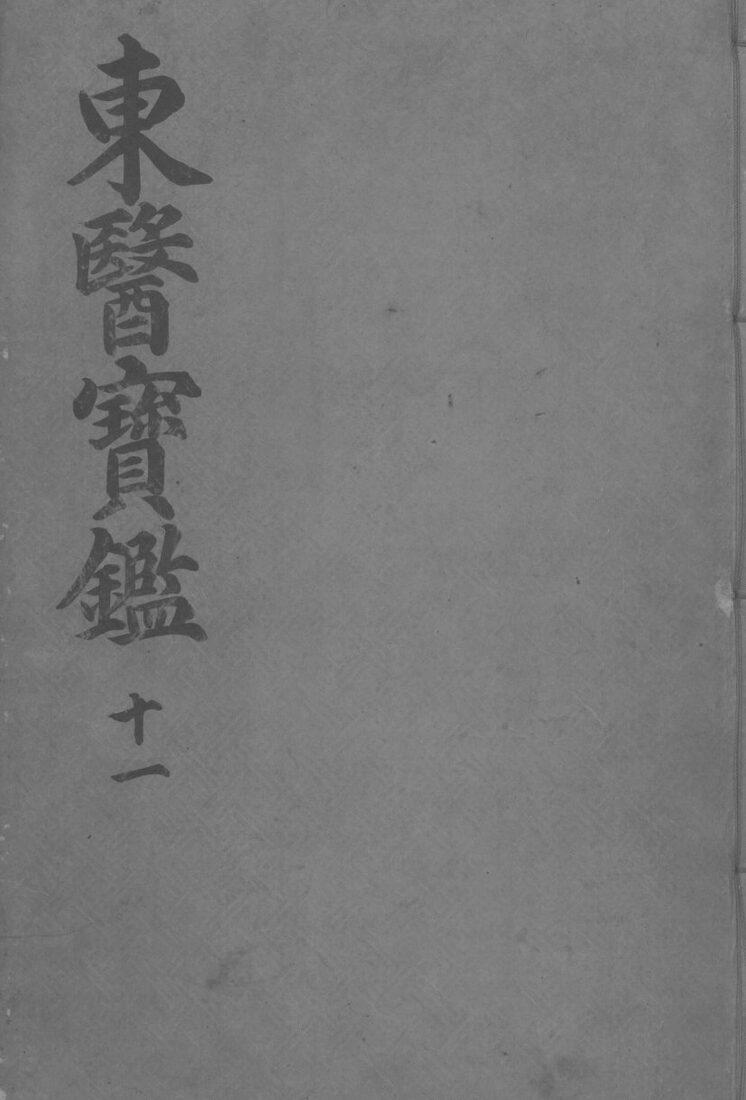 東醫寶鑑
十一